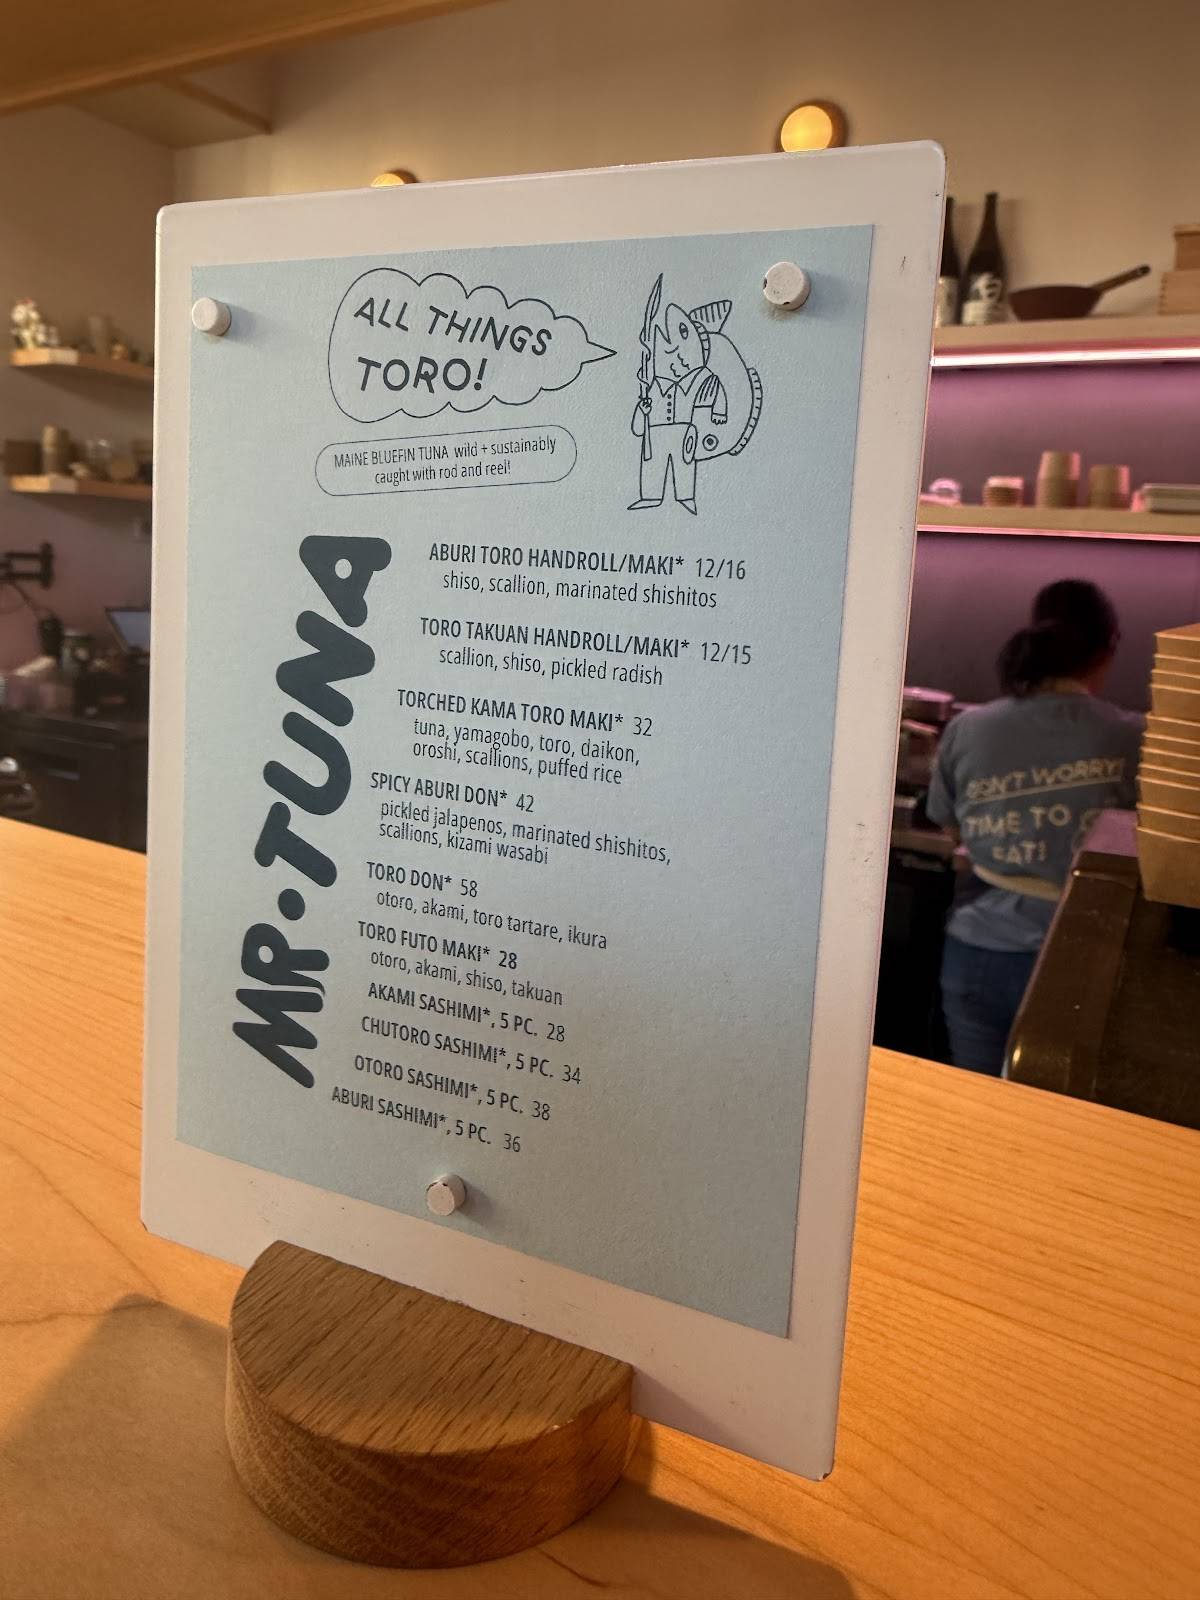 ALL THINGS
TORO!
MAINE BLUEFIN TUNA wild + sustainably
caught with rod and reel!
MR•TUNA
ABURI TORO HANDROLL/MAKI* 12/16
shiso, scallion, marinated shishitos
TORO TAKUAN HANDROLL/MAKI* 12/15
scallion, shiso, pickled radish
TORCHED KAMA TORO MAKI* 32
tuna, yamagobo, toro, daikon,
oroshi, scallions, puffed rice
SPICY ABURI DON* 42
pickled jalapenos, marinated shishitos,
scallions, kizami wasabi
TORO DON* 58
otoro, akami, toro tartare, ikura
TORO FUTO MAKI* 28
otoro, akami, shiso, takuan
AKAMI SASHIMI*, 5 PC. 28
CHUTORO SASHIMI*, 5 PC. 34
OTORO SASHIMI*, 5 PC. 38
ABURI SASHIMI*, 5 PC. 36
DON'T WORRY!
TIME TO
EAT!